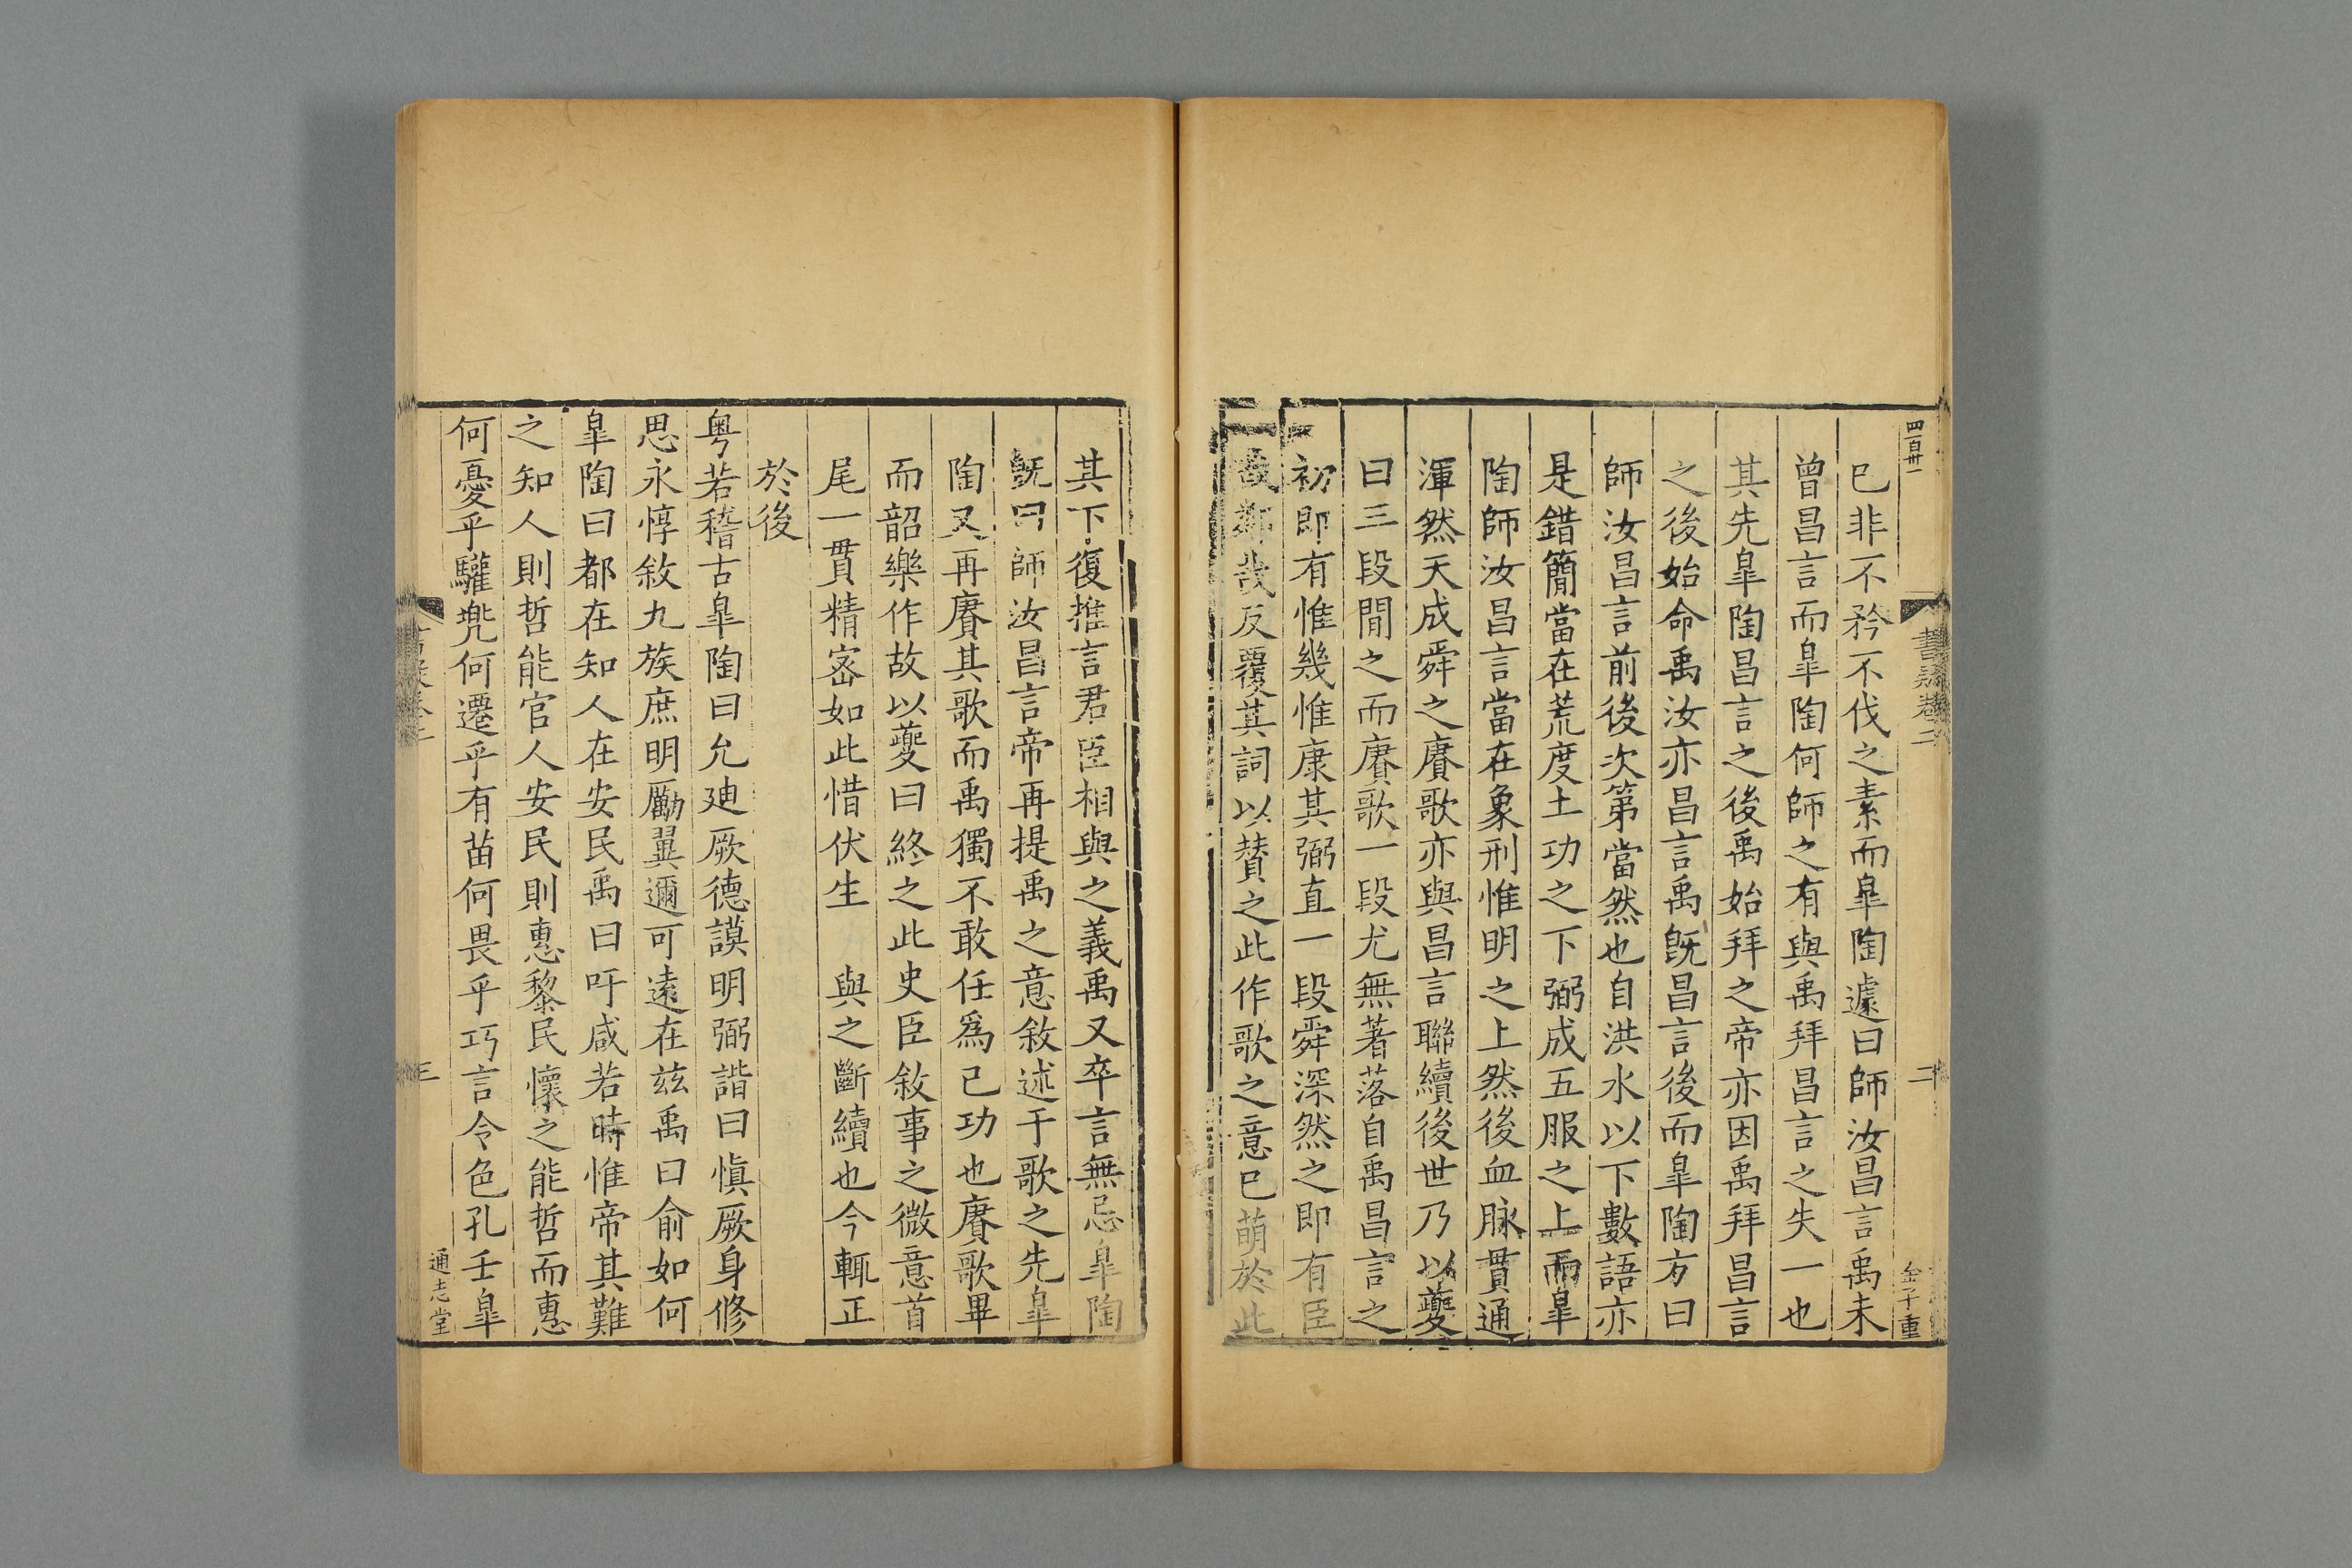 四百卅一
書疑卷二
二
金子重
已非不矜不伐之素而臯陶遽曰師汝昌言禹未
曾昌言而臯陶何師之有與禹拜昌言之失一也
其先臯陶昌言之後禹始拜之帝亦因禹拜昌言
之後始命禹汝亦昌言禹旣昌言後而臯陶方曰
師汝昌言前後次第當然也自洪水以下數語亦
是錯簡當在荒度土功之下弼成五服之上而臯
陶師汝昌言當在象刑惟明之上然後血脉貫通
渾然天成舜之賡歌亦與昌言聯續後世乃以夔
曰三段間之而賡歌一段尤無著落自禹昌言之
初即有惟幾惟康其弼直一段舜深然之即有臣
哉鄰哉反覆其詞以賛之此作歌之意已萌於此
其下復推言君臣相與之義禹又卒言無忌臯陶
旣曰師汝昌言帝再提禹之意敘述于歌之先臯
陶又再賡其歌而禹獨不敢任爲己功也賡歌畢
而韶樂作故以夔曰終之此史臣敘事之微意首
尾一貫精宻如此惜伏生 與之斷續也今輒正
於後
粤若稽古臯陶曰允廸厥德謨明弼諧曰愼厥身修
思永惇敘九族庶明勵翼邇可遠在兹禹曰俞如何
臯陶曰都在知人在安民禹曰吁咸若時惟帝其難
之知人則哲能官人安民則惠黎民懷之能哲而惠
何憂乎驩兠何遷乎有苗何畏乎巧言令色孔壬臯
三
通志堂